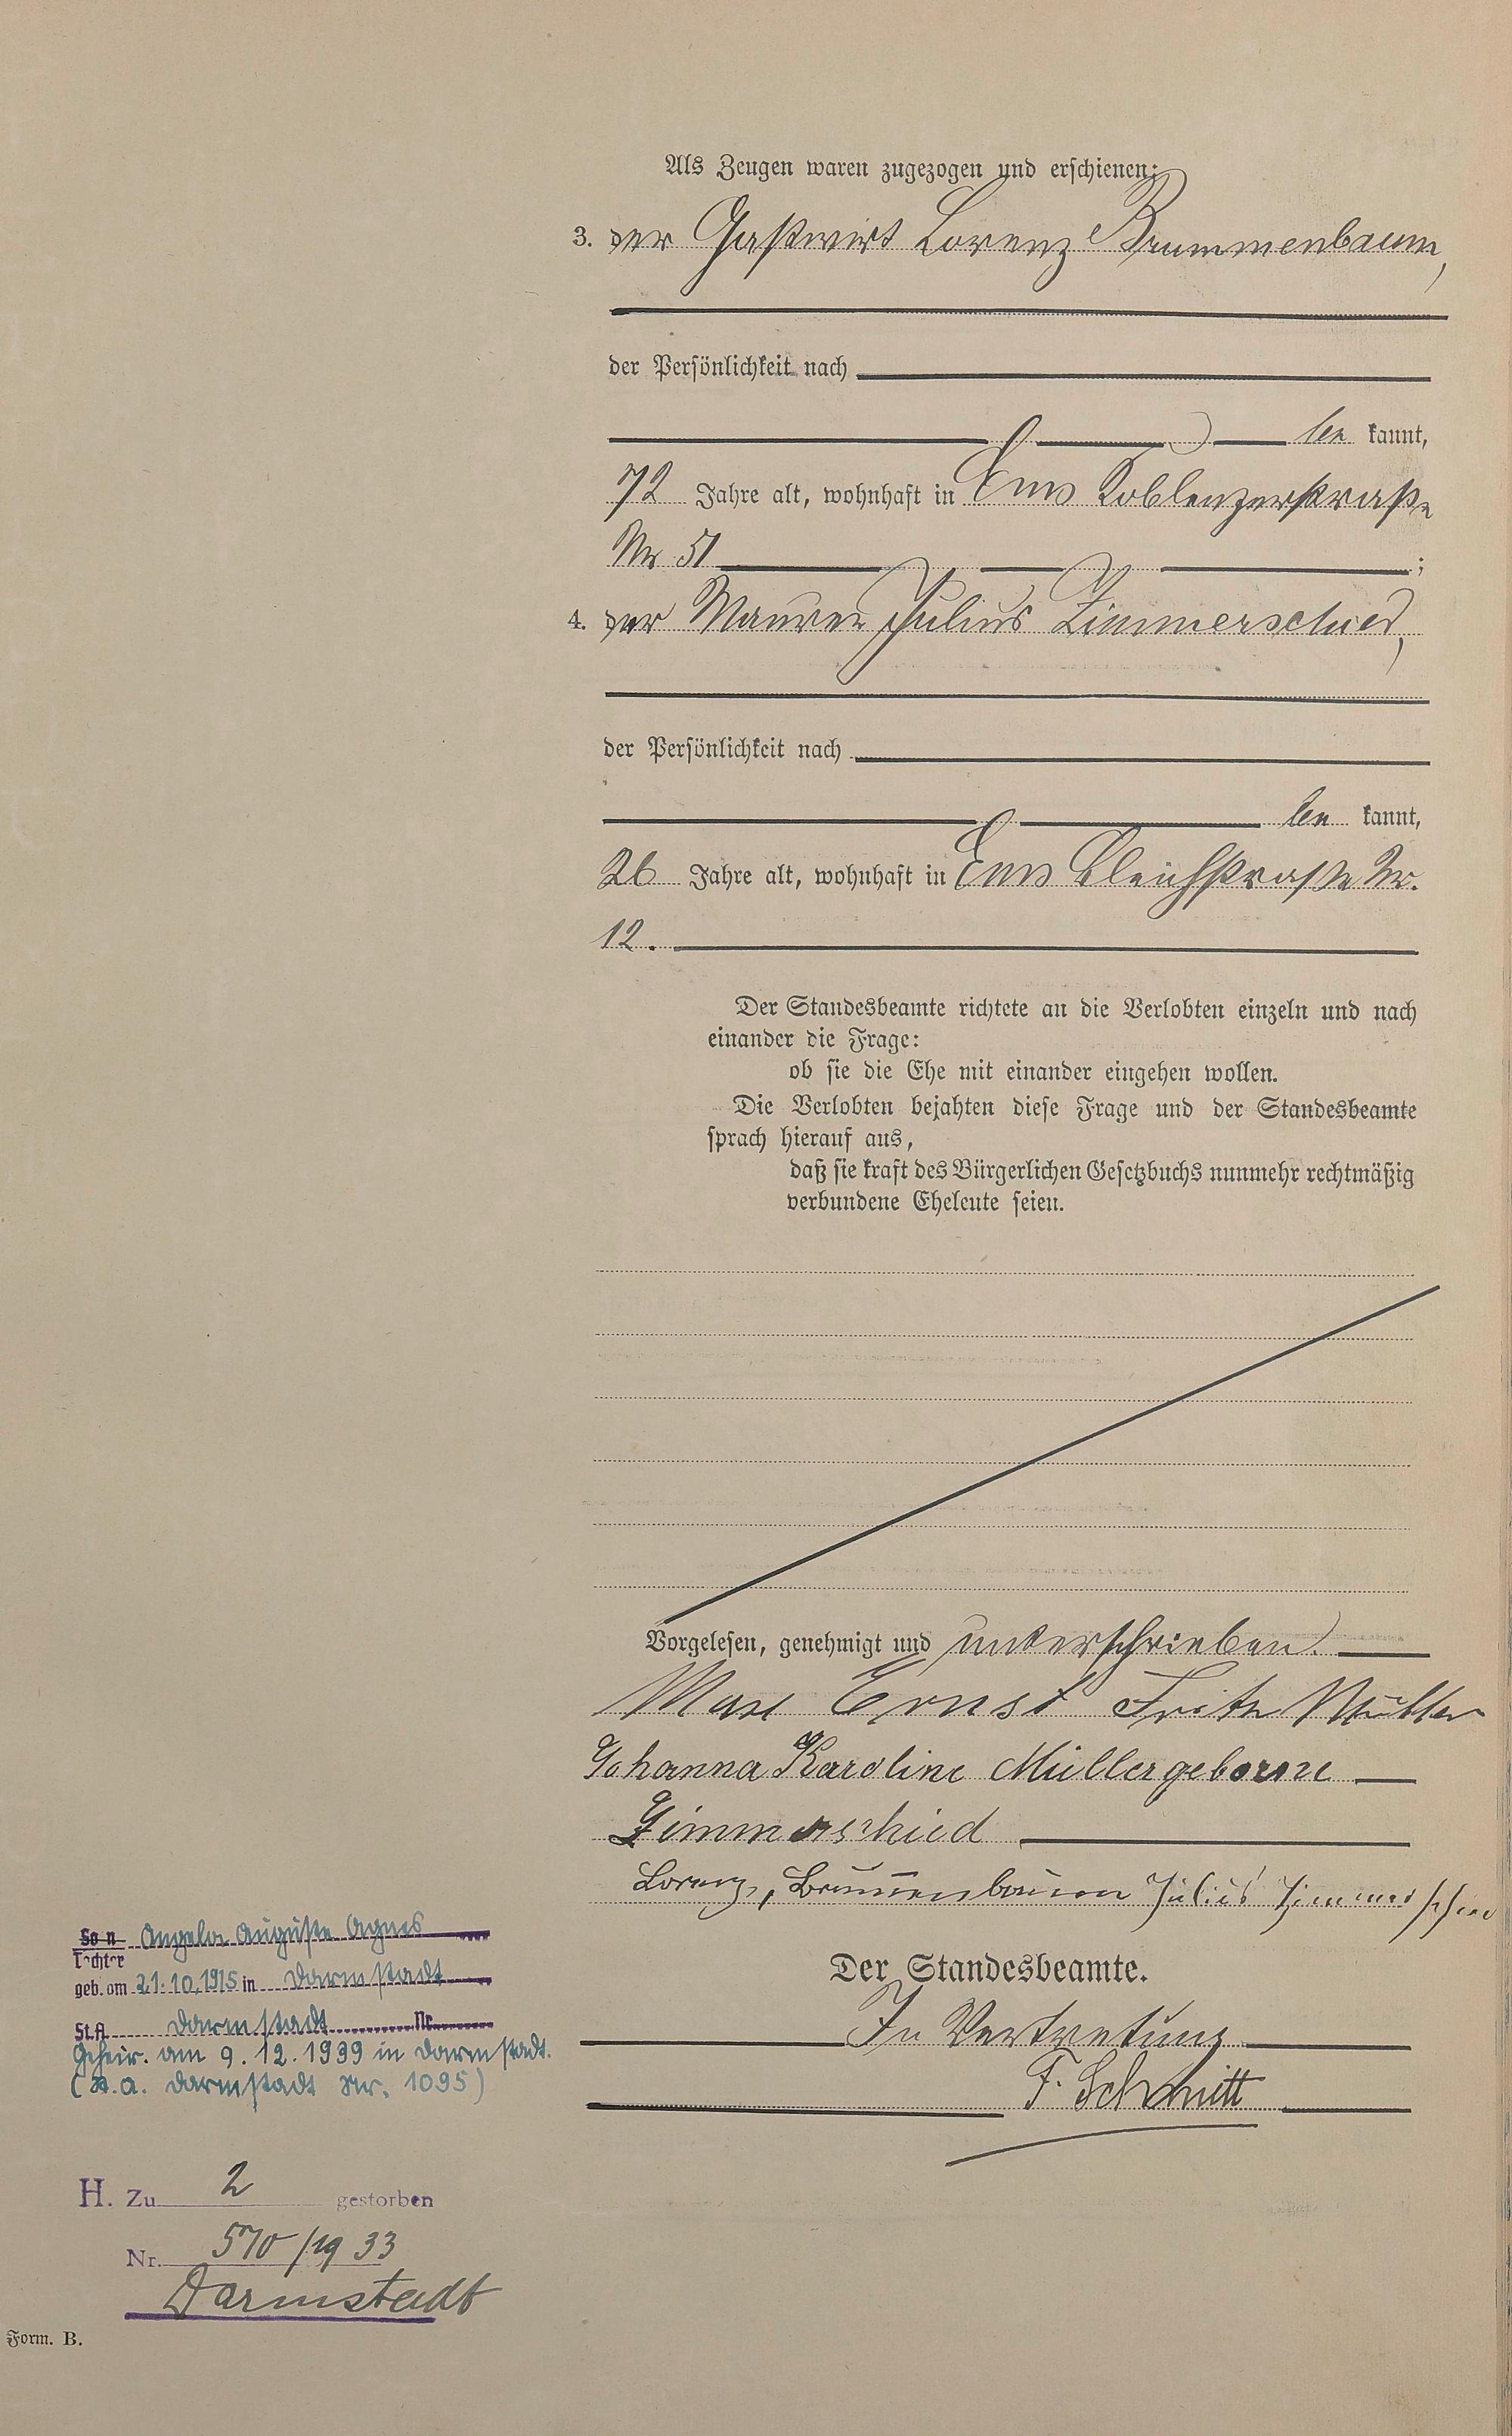 Als Zeugen waren zugezogen und erschienen:
3. der Gastwirt Lorenz Brummenbaum,
der Persönlichkeit nach
be kannt,
72 Jahre alt, wohnhaft in Ems Koblenzerstraße
Nr 51 ;
4. der Maurer Julius Zimmerschied,
der Persönlichkeit nach
be kannt,
26 Jahre alt, wohnhaft in Ems Bleichstraße Nr.
12.
Der Standesbeamte richtete an die Verlobten einzeln und nach
einander die Frage:
ob sie die Ehe mit einander eingehen wollen.
Die Verlobten bejahten diese Frage und der Standesbeamte
sprach hierauf aus,
daß sie kraft des Bürgerlichen Gesetzbuchs nunmehr rechtmäßig
verbundene Eheleute seien.
Vorgelesen, genehmigt und unterschrieben.
Max Ernst Fritz Müller
Johanna Karoline Müller geborne
Zimmerschied
Lorenz Julius Zimmerschied
Der Standesbeamte.
In Vertretung
F. Schmitt
Sohn Angela Auguste Agnes
Tochter
geb. am 21.10.1915 in Darmstadt
St.A. Darmstadt Nr.
Geheir. am 9.12.1939 in Darmstadt.
(St.A. Darmstadt Nr. 1095)
H. Zu 2 gestorben
Nr. 570/1933
Darmstadt
Form. B.